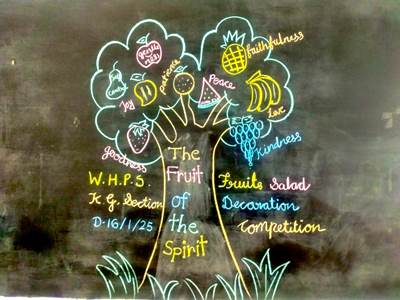 gentle
ness
faithfulness
patience
Peace
Joy
Love
goodness
Kindness
The
Fruit
of
the
Spirit
W.H.P.S.
K.G. Section
D-16/1/25
Fruits Salad
Decoration
Competition